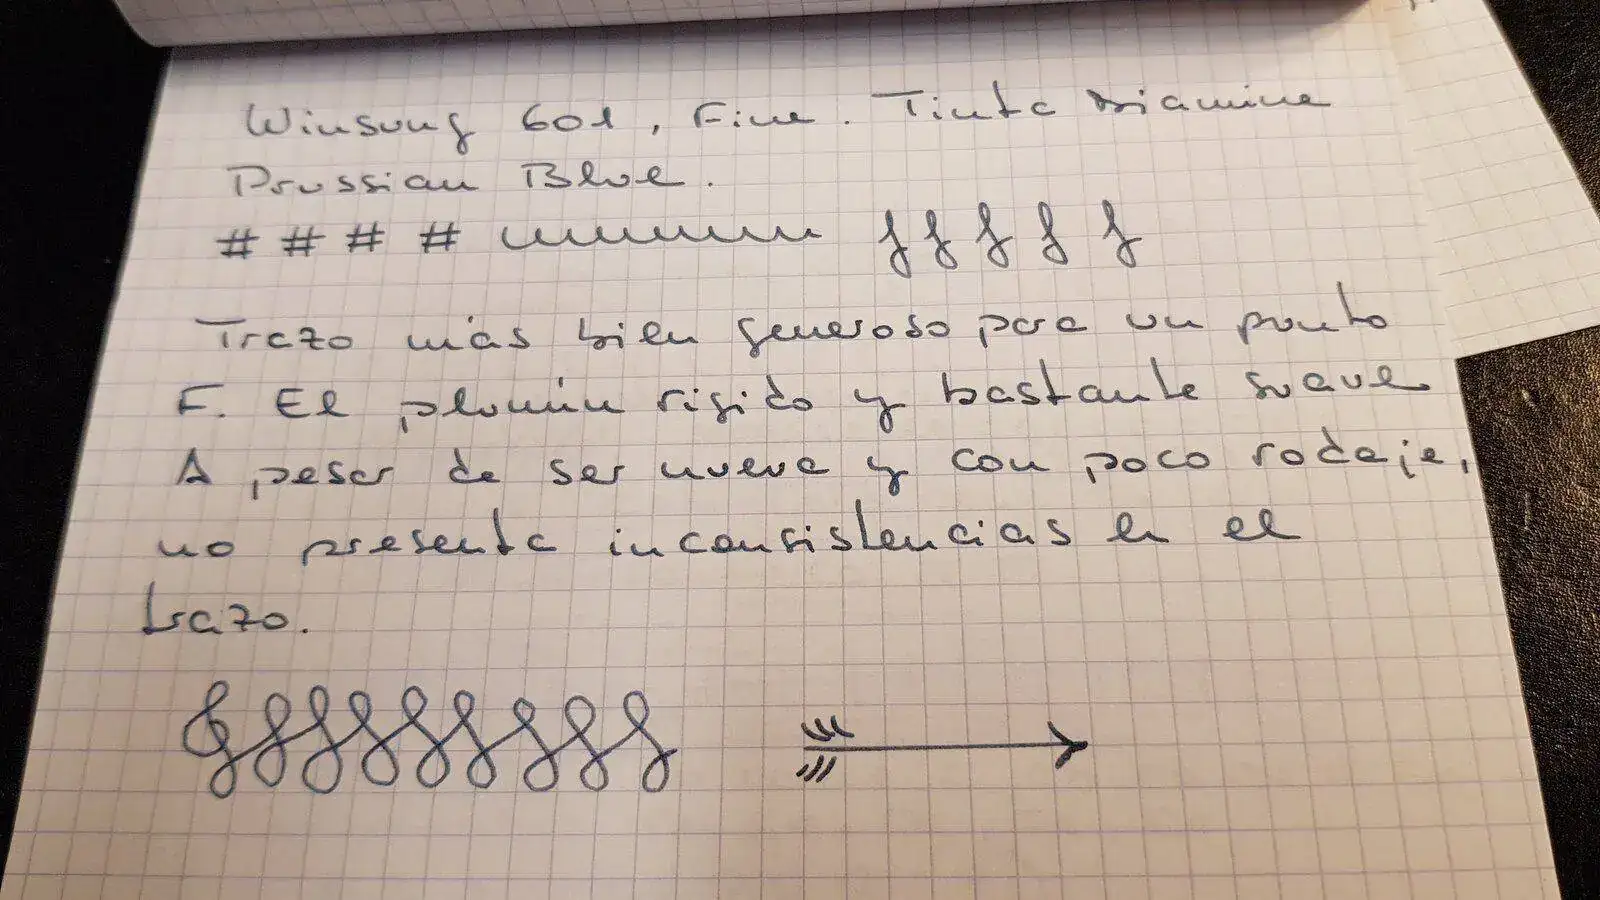 Winsung 601, Fine. Tinta Diamine
Prussian Blue.
# # # #
Trazo más bien generoso para un punto
F. El plumín rígido y bastante suave
A pesar de ser nueva y con poco rodaje,
no presenta inconsistencias en el
trazo.